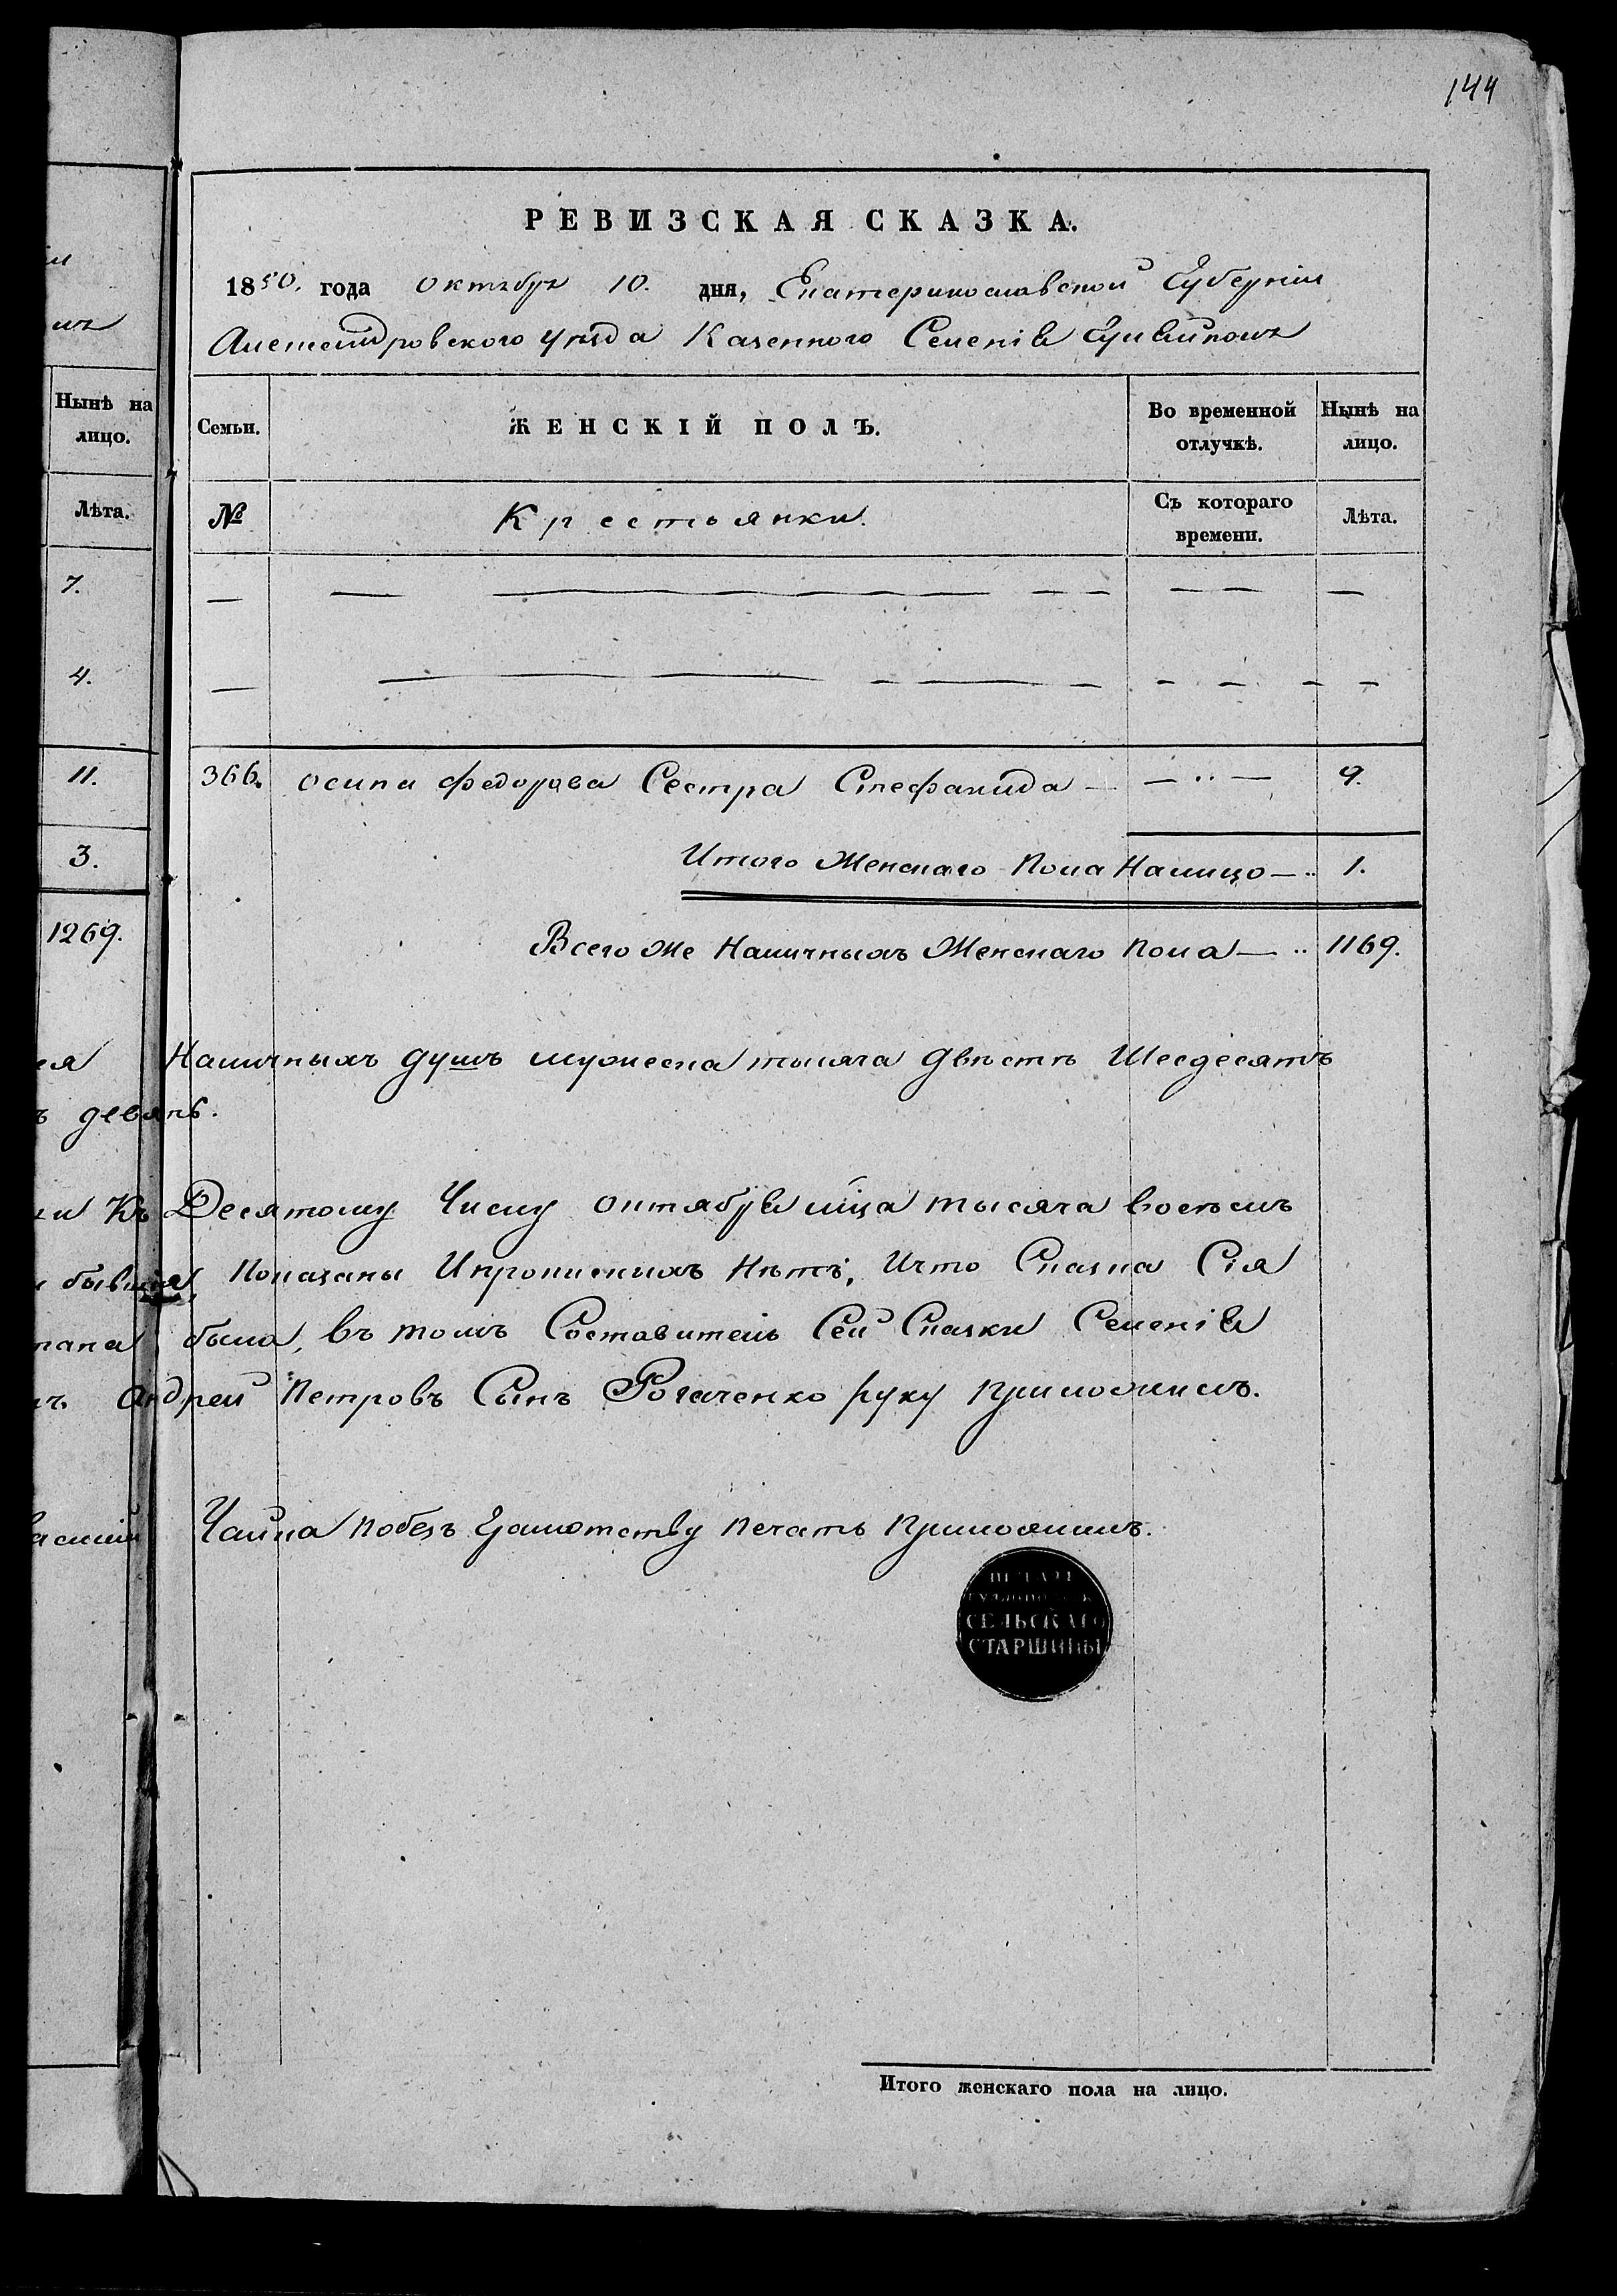 144
РЕВИЗСКАЯ СКАЗКА.
1850. года октября 10. дня, Екатеринославской Губерніи
Александровского уѣзда Казенного Селенія Гуляйполя
Нынѣ на лицо.
Семьи.
ЖЕНСКІЙ ПОЛЪ.
Во временной отлучкѣ.
Нынѣ на лицо.
Лѣта.
№
Крестьянки.
Съ котораго времени.
Лѣта.
7.
4.
11. 366. осипа федорова Сестра Стефанида — 9.
3. Итого Женскаго пола Налицо — 1.
1269. Всего же Наличныхъ Женскаго пола — 1169.
Наличныхъ душъ мужеска тысяча двѣстѣ Шесдесятъ
девять.
Къ Десятому Числу октября мца тысяча восемъ
бывшія, показаны Ипрописныхъ Нѣтъ, Ичто Сказка Сія
была, въ томъ Составитель Сей Сказки Селенія
Андрей Петровъ Сынъ Рогаченко руку приложилъ.
Чайка побезъ Грамотству печать приложилъ.
ПЕЧАТЬ
СЕЛЬСКАГО
СТАРШИНЫ
Итого женскаго пола на лицо.